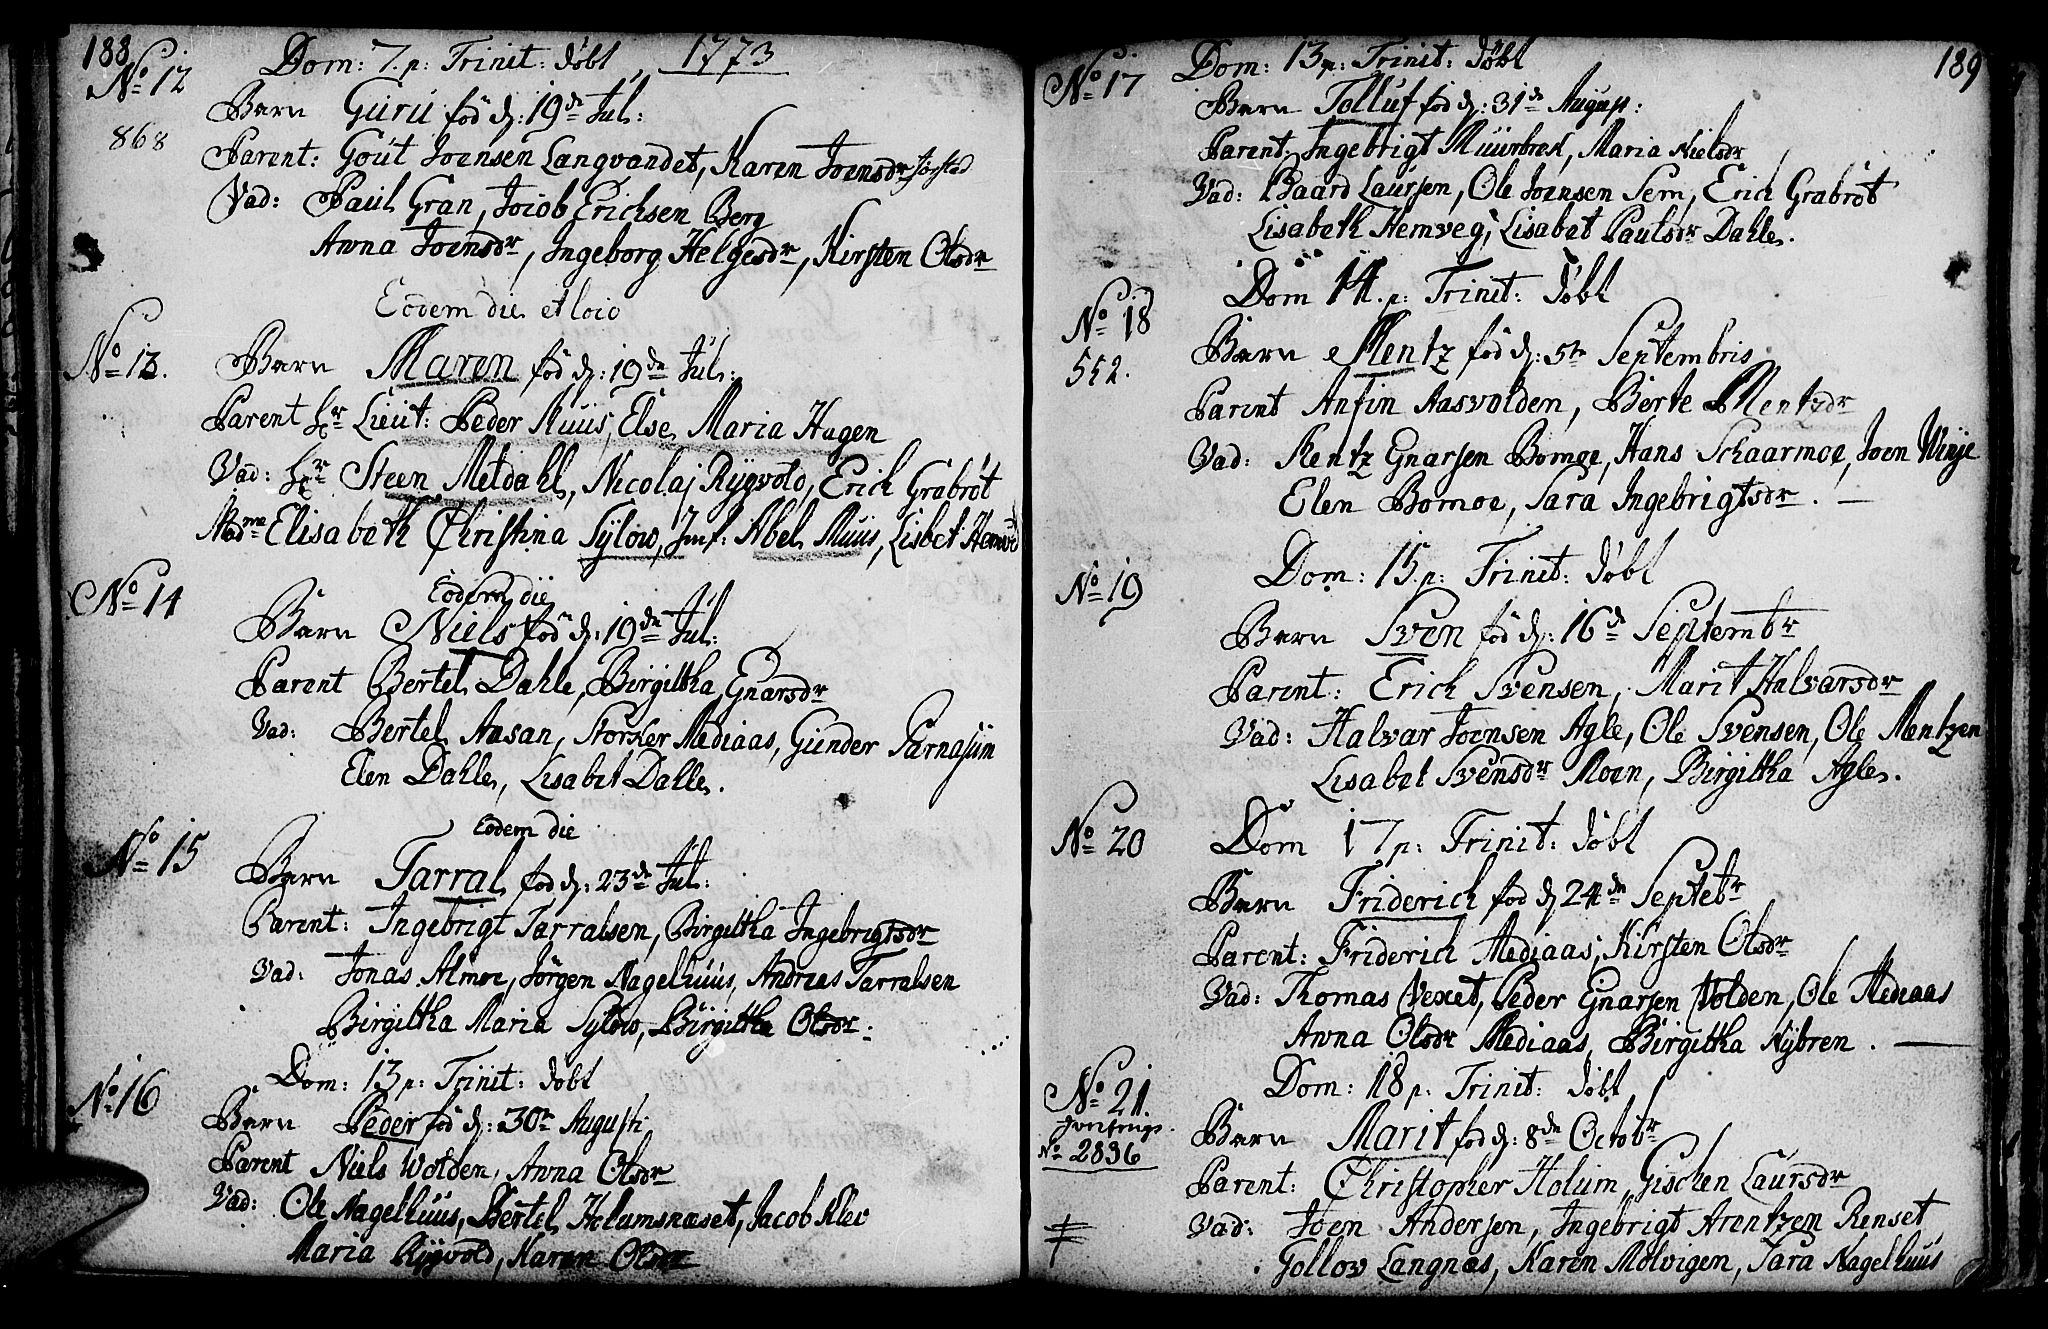 188
No 12 Dom: 7. p: Trinit: döbt 1773
Barn Guru fød d: 19de Jul:
868
Parent: Gout Joensen Langvandet, Karen Joensdr
Vad: Paul Gran, Jocob Erichsen Berg
Anna Joensdr, Ingeborg Helgesdr, Kirsten Olsdr
Eodem die et loco
No 13. Barn Maren fød d: 19de Jul:
Parent Hr Lieut: Peder Muus, Else Maria Hagen
Vad: Hr Steen Meldahl, Nicolaj Rÿgvold, Erich Grabröt
Madme Elisabeth Christina Sylow, Jmf: Abel Muus, Lisbet
Eodem die
No 14 Barn Niels fød d: 19de Jul:
Parent Bertel Dahle, Birgittha Gnarsdr
Vad: Bertel Aasan, Storker Mediaas, Gunder Parnasum
Elen Dahle, Lisabet Dalle.
Eodem die
No 15 Barn Tarral fød d: 23de Jul:
Parent: Ingebrigt Tarralsen, Birgittha Ingebrigtsdr
Vad: Jonas Almoe, Jörgen Nagelhuus, Andreas Tarralsen
Birgittha Maria Sylow, Birgittha Olsdr.
Dom: 13 p: Trinit: döbt
No 16 Barn Peder fød d: 30te Augusti
Parent Niels Wolden, Anna Olsdr
Vad: Ole Nagelhuus, Bertel Holumsnæset, Jacob Klev
Maria Rÿgvold, Karen Olsdr
189
No 17 Dom: 13 p: Trinit: döbt
Barn Tolluf fød d: 31de August:
Parent: Ingebrigt Muurbrek, Maria Nielsdr
Vad: Baard Laursen, Ole Joensen Sem, Erich Grabröt
Lisabeth Hemveg, Lisabet Paulsdr Dahle.
Dom 14. p: Trinit: döbt
No 18 Barn Mentz fød d: 5te Septembris
552.
Parent Anfin Aasvolden, Berte Mentzdr
Vad: Mentz Gnarsen Bomoe, Hans Schaarmoe, Joen Winje
Elen Bomoe, Sara Ingebrigtsdr.
Dom: 15 p: Trinit: döbt
No 19
Barn Sven fød d: 16de Septembr
Parent: Erich Svensen, Marit Halvarsdr
Vad: Halvar Joensen Agle, Ole Svensen, Ole Mentzen
Lisabet Svensdr Moen, Birgittha Agle.
No 20 Dom 17 p: Trinit: döbt
Barn Friderich fød d 24de Septebr
Parent: Friderich Mediaas, Kirsten Olsdr
Vad: Thomas Vexet, Peder Gnarsen Volden, Ole Mediaas
Anna Olsdr Mediaas, Birgittha Nybren.
Dom: 18 p: Trinit: döbt
No 21. Barn Marit fød d: 8de Octobr
No 2836
Parent: Christopher Holum, Gischen Laursdr
Vad: Joen Andersen, Ingebrigt Arentzen Renset
Gollow Langnæs, Karen Molvigen, Sara Nagelhuus